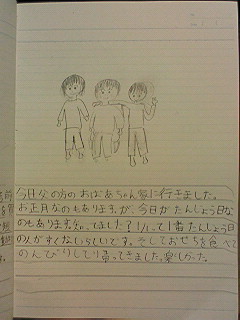 今日なの方のおばあちゃん家に行きました。
お正月なのもありますが、今日がたんじょう日な
のもあります。知ってました？1/1って1番たんじょう日
の人がすくないらしいです。そしておせちを食べて
のんびりしてり帰ってきました。楽しかった。